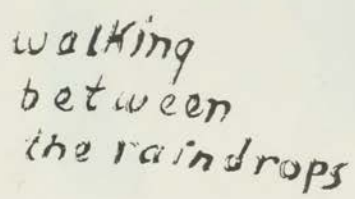 walking
between
the raindrops